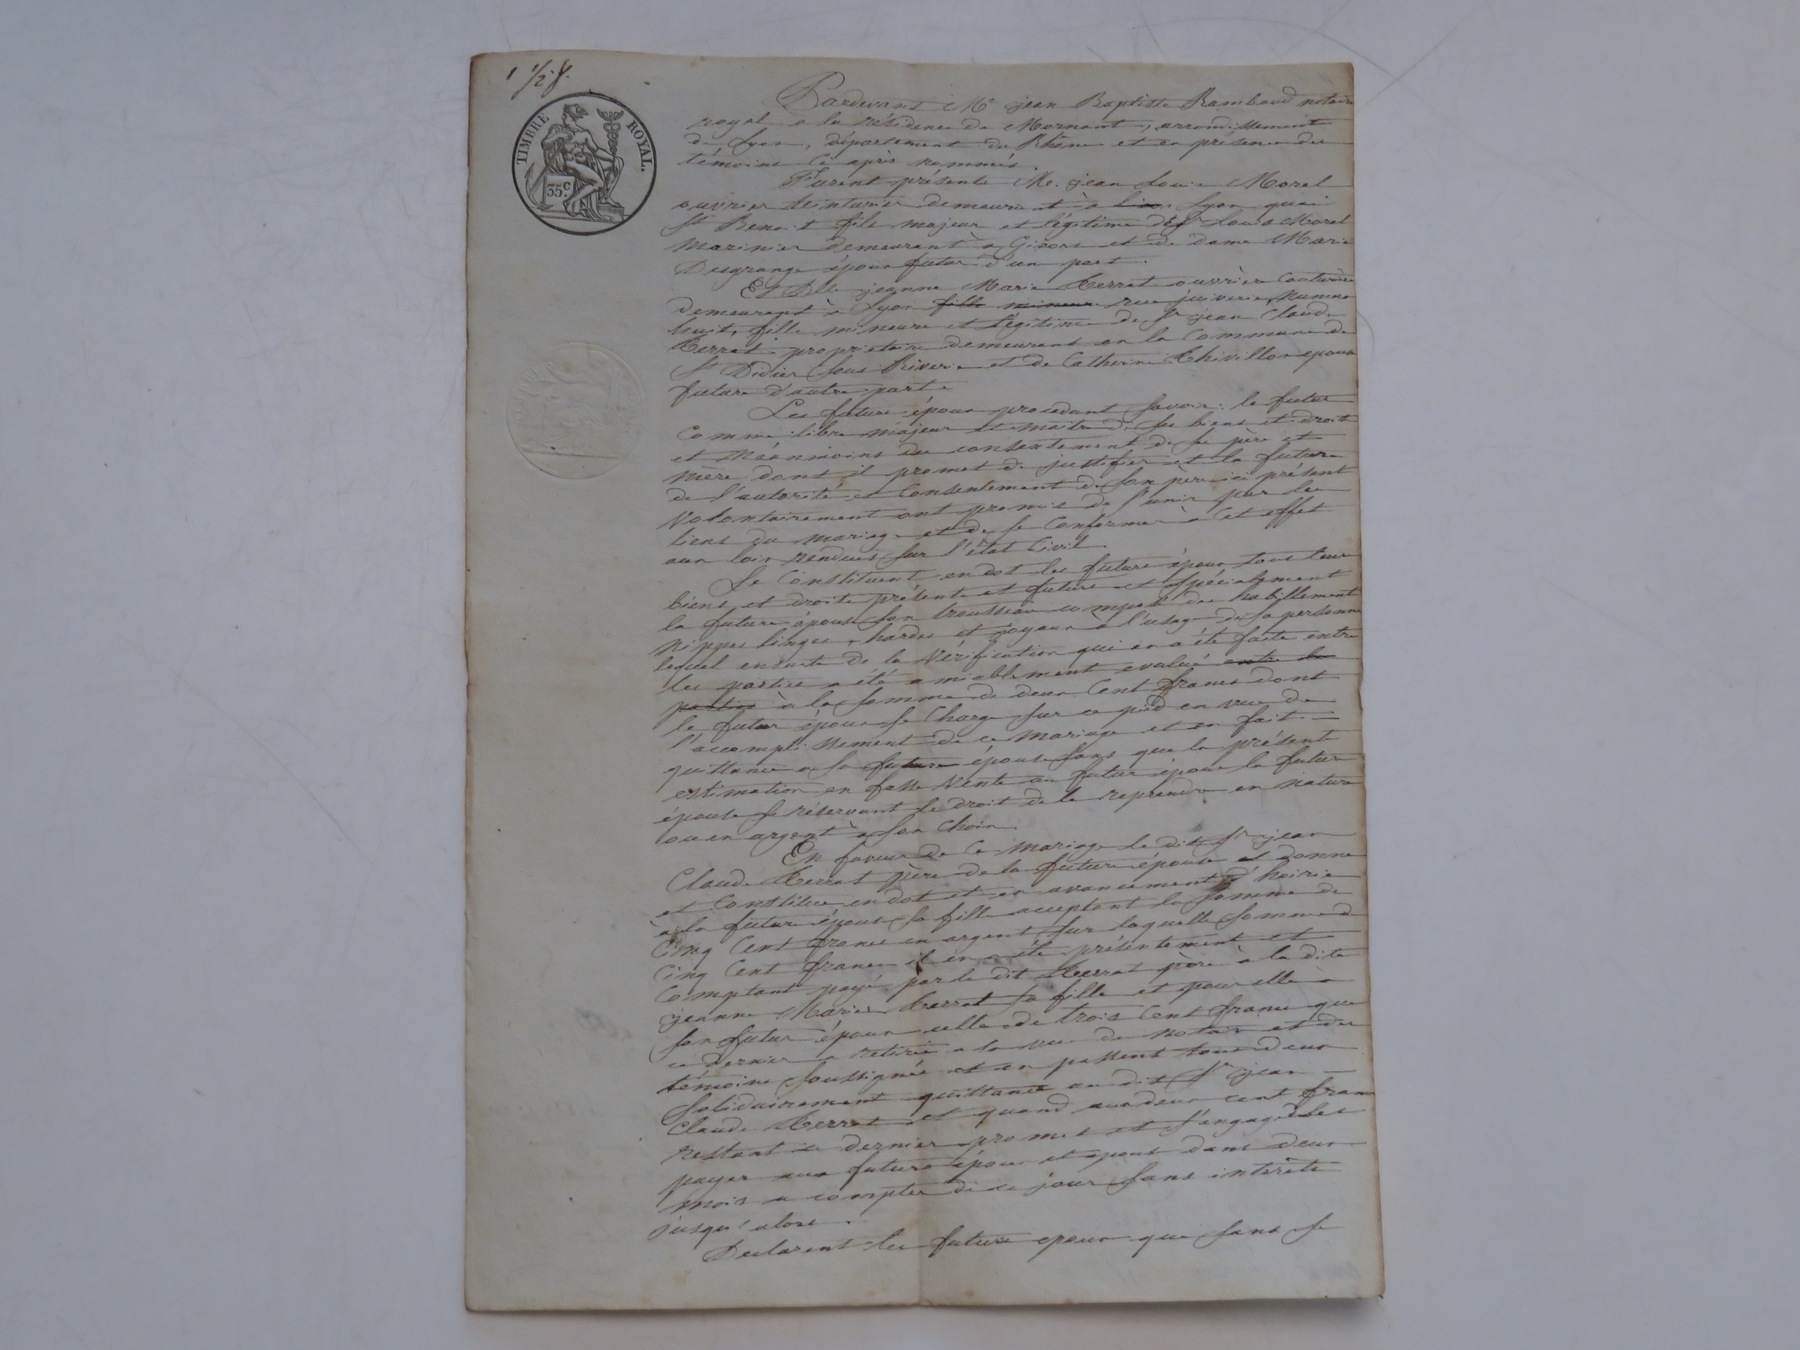 1 1/2 f.
TIMBRE ROYAL.
35c
Pardevant Me jean Baptiste Rambaud notaire
royal a la résidence de Mornant, arrondissement
de Lyon, département du Rhône et en présence des
témoins ci après nommés.
Furent présents Mr. jean Louis Morel
ouvrier teinturier demeurant à Lyon quai
St Benoit fils majeur et légitime de Sr Louis Morel
marinier demeurant à Givors et de dame Marie
Desgrange époux futur d'un part.
Et Dlle jeanne Marie Verrat ouvrière Couturière
demeurant à Lyon fille mineure rue juiverie, Numero
huit, fille mineure et légitime de Sr jean Claude
Verrat propriétaire demeurant en la Commune de
St Didier Sous Riverie et de Catherine Thivillon épouse
future d'autre part.
Les future époux procedant Savoir: le futur
Comme libre majeur et maitre de Ses biens et droit
et Néanmoins du consentement de Se père et
mère dont il promet de justifier et la future
de l'autorité et Consentement de Son père ici présent
Volontairement ont promis de S'unir par les
liens du mariage et de Se Conformer à Cet effet
aux lois rendues Sur l'état Civil.
Se Constituent en dot les futurs époux tous leurs
biens et droits présents et futurs et Spécialement
la future épouse Son trousseau composé des habillement
Nippes linges, hardes et joyaux à l'usage de Sa personne
lequel ensuite de la Vérification qui en a été faite entre
les parties a été amiablement evalué entre les
parties à la Somme de deux Cent francs dont
le futur époux Se Charge Sur ce pied en vue de
l'accomplissement de ce mariage et en fait
quittance a Sa future épouse Sans que la présent
estimation en fasse Vente au futur époux la future
épouse Se réservant le droit de le reprendre en nature
ou en argent à Son Choix.
En faveur de Ce mariage le dit Sr jean
Claude Verrat père de la future épouse a donné
et Constitue en dot et en avancement d'hoirie
à la future épouse Sa fille acceptant la Somme de
Cinq Cent francs en argent Sur laquelle Somme de
Cinq Cent francs il en a été présentement et
Comptant payé par le dit Verrat père à la dite
jeanne Marie Verrat Sa fille et pour elle à
Son futur époux celle de trois Cent francs que
ce dernier a retirée a la vue du notaire et des
témoins Soussignés et en passent tous deux
Solidairement quittance au dit Sr jean
Claude Verrat et quand aux deux cent francs
restant ce dernier promet et S'engage de les
payer aux futurs époux et épouse dans deux
mois a compter de ce jour Sans intérêts
jusqu'alors.
Declarent les future epoux que Sans Se